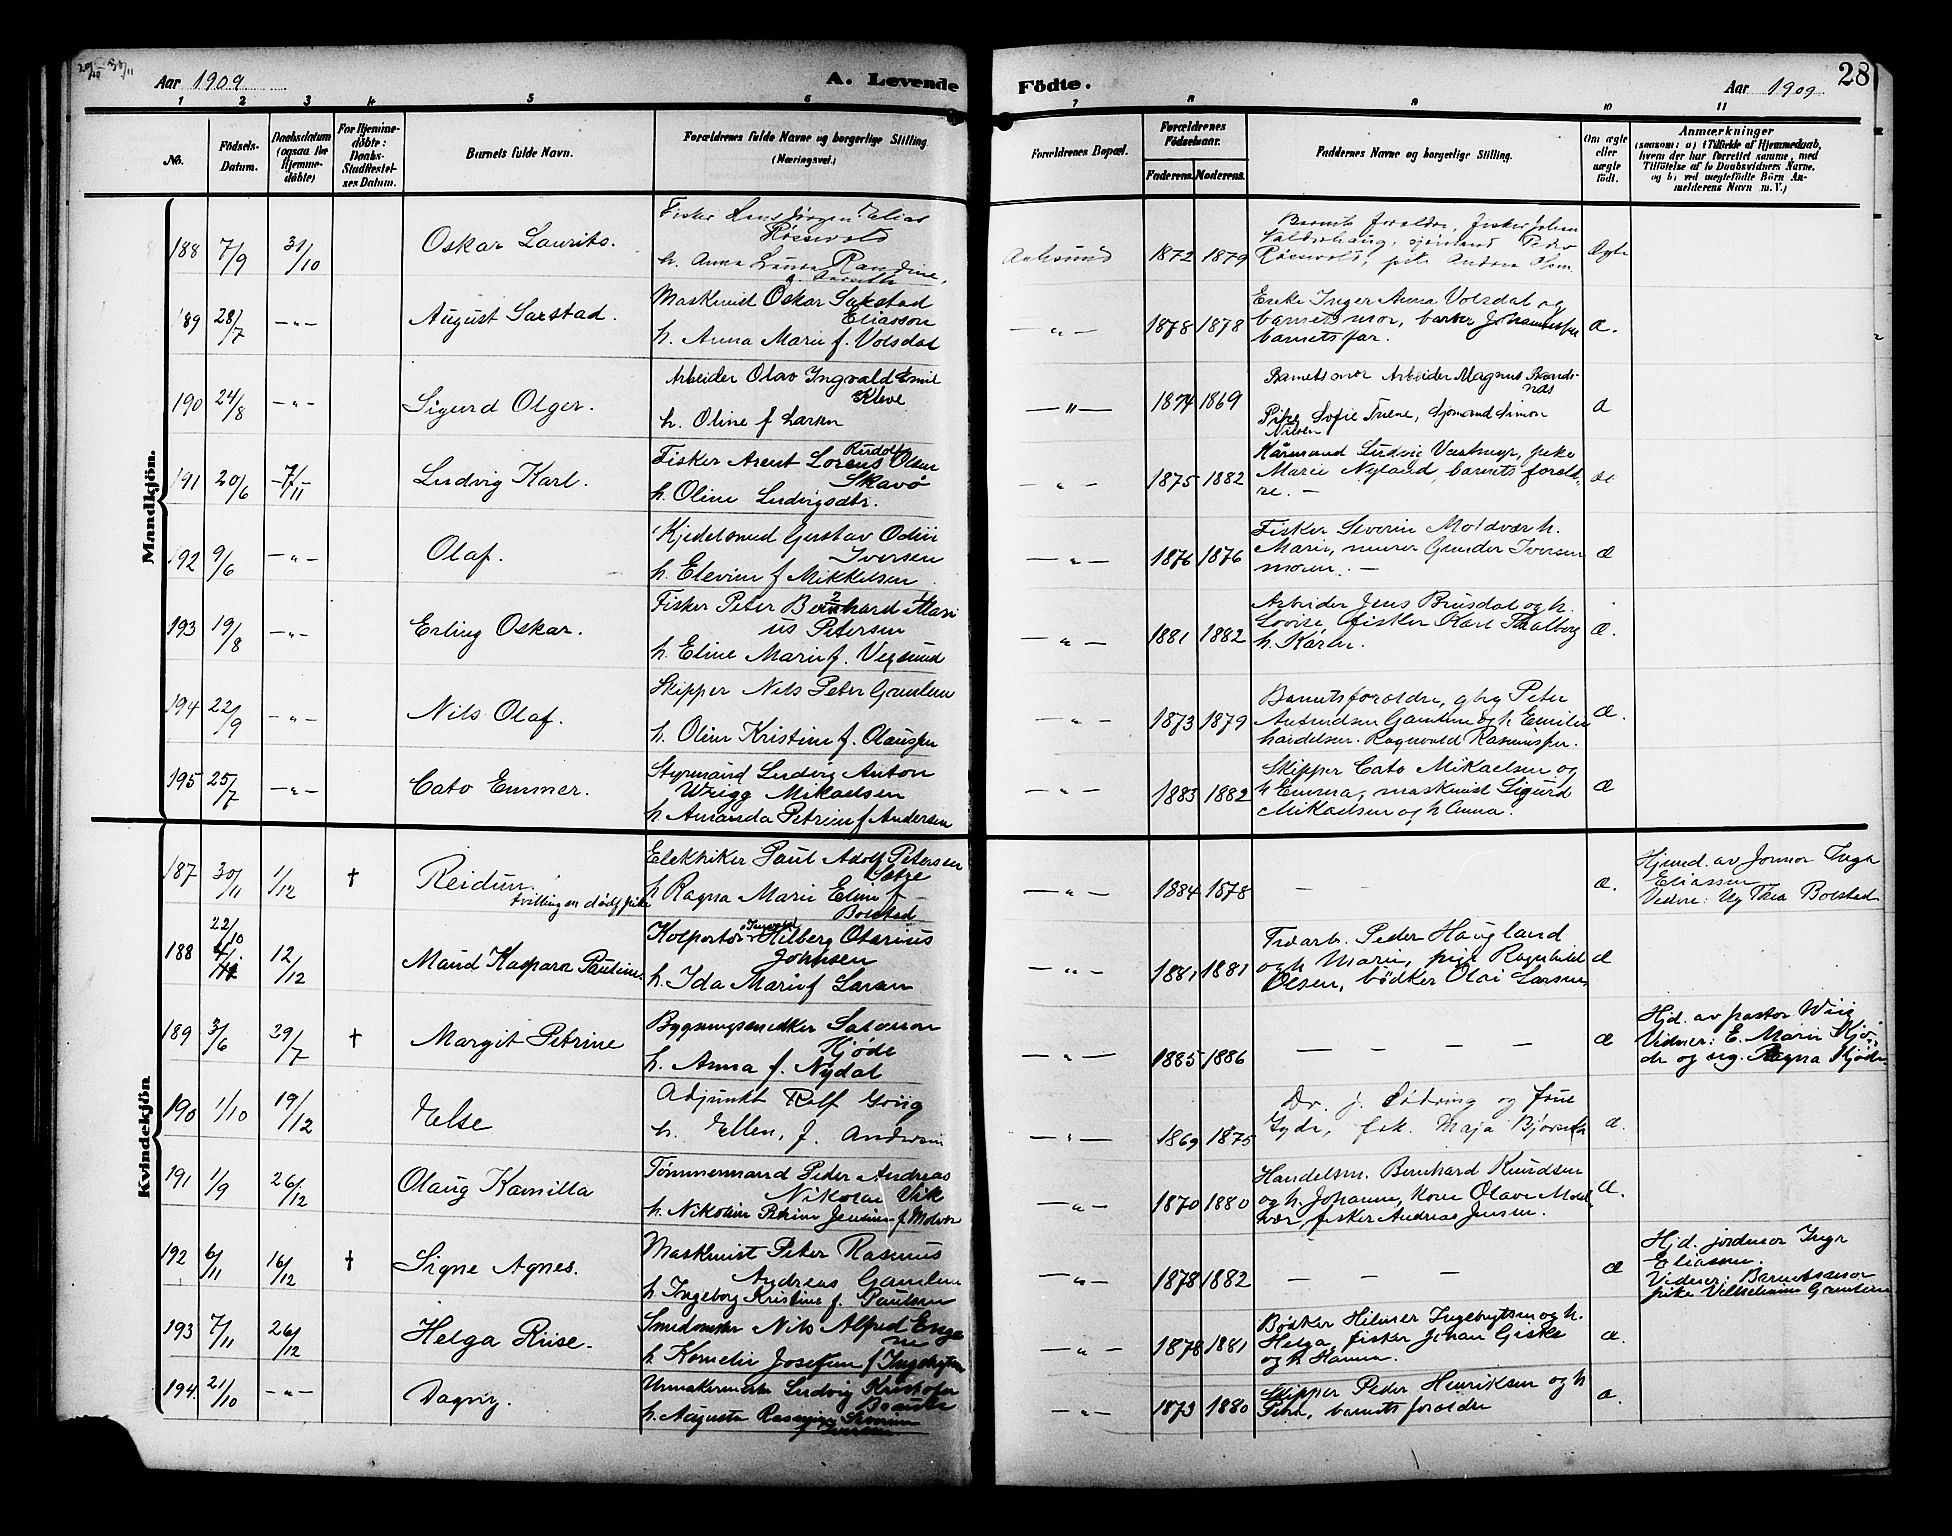 Aar 1909
A. Levende
Fødte.
Aar 1909
28
1 2 3 4 5 6 7 8 9 10 11
No.
Födsels-Datum.
Daabsdatum (ogsaa for Hjemmedöbte)
For Hjemmedöbte: Daabs-Stadfæstelses Datum.
Barnets fulde Navn.
Forældrenes fulde Navne og borgerlige Stilling (Næringsvei.)
Forældrenes Bopæl.
Forældrenes Födselsaar.
Faderens. Moderens.
Faddernes Navne og borgerlige Stilling.
Om ægte eller uægte født.
Anmærkninger
(saasom: a) i Tilfælde af Hjemmedaab,
hvem der har forrettet samme, med
Tilföielse af to Daabsvidners Navne,
og b) ved uægtefödte Börn Anmelderens Navn m. V.)
Mandkjön.
188 7/9 31/10 Oskar Laurits.
Fisker Hans Jørgen Elias
Røssevold
h. Anna Laura Randine
Aalesund 1872 1879
Barnets foraldre, fisker Johan
Valderhaug, sjömand Peder
Røssevold, pike Andrea
Ægte
189 28/7 —"— August Sarstad.
Maskinist Oskar Sarstad
Eliassen
h. Anna Marie f. Volsdal
—"— 1878 1878
Enke Inger Anna Volsdal og
barnets mor,
barnets far.
Æ.
190 24/8 —"— Sigurd Olger.
Arbeider Olav Ingvald Emil
Kleve
h. Oline f Larsen
—"— 1874 1869
Barnets mor Arbeider Magnus Brandsnæs
Pike Sofie Trene, Sjømand Simon
Nilsen
Æ
191 20/6 7/11 Ludvig Karl.
Fisker Arent Lorens Rudolf Olsen
Skavø
h. Oline Ludvigsdtr.
—"— 1875 1882
Ludvig Vartmyr, pike
Marie Nyland, barnets foraldre. —
Æ
192 9/6 —"— Olaf.
Kjedelsmed Gustav Odin
Iversen
h. Elevine f Mikkelsen
—"— 1876 1876
Fisker Severin Moldvær h.
Marie, murer Gunder Iversen
moren. —
Æ
193 19/8 —"— Erling Oskar.
Fisker Peter Bernhard Marius Petersen
h. Eline Marie f. Vegsund
—"— 1881 1882
Arbeider Jens Brusdal og h.
Lovise, fisker Karl Thalberg
h. Karen.
Æ.
194 22/9 —"— Nils Olaf.
Skipper Nils Peter Gamlem
h. Oline Kristine f. Olaussen
—"— 1873 1879
Barnets foraldre, gbr Peter
Andreassen Gamlem og h Emilie
handelsm. Ragnvald Rasmussen.
Æ.
195 25/7 —"— Cato Emmer.
Styrmand Ludvig Anton
Wrigg Mikaelsen
h. Amanda Petrine f Andersen
—"— 1883 1882
Skipper Cato Mikaelsen og
h Emma, maskinist Sigurd
Mikaelsen og h Anna.
Æ
Kvindekjön
187 30/11 1/12 † Reidun.
tvilling en dødf. pike
Elektriker Paul Adolf Petersen
Satre
h Ragna Marie Eline f
Bolstad
—"— 1884 1878 —
Æ.
Hjmd. av Jormor Inga
Eliassen
Vidne: Ug Thea Bolstad
188 22/10 12/12 Maud Kaspara Pauline
Kolportør Ingvald Hilberg Otarius
Johnsen
h. Ida Marie f Larsen
—"— 1881 1881
Peder Haugland
og h Marie, pige Ragnhild
Olsen, bødker Olai Larsen
Æ
189 3/6 29/7 † Margit Petrine
Bygningssnedker Salomon
Kjøde
h. Anna f. Nydal
—"— 1885 1886 — — — —
Æ
Hjd. av pastor Wiig
Vidner: E. Marie Kjøde og ug. Ragna Kjøde
190 1/10 19/12 Else
Adjunkt Rolf Grüg
h. Ellen, f. Andersen
—"— 1869 1875
Dr. J. Sødring og frue
Gyda, frk. Maja
Æ.
191 1/9 26/12 Olaug Kamilla
Tømmermand Peder Andreas
Nikolai Vik
h. Nikoline Petrine Jensine f Molvær
—"— 1870 1880
Handelsm. Bernhard Knudsen
og h. Johanne, Kone Olave Moldvær, fisker Andreas Jensen.
Æ.
192 6/11 16/12 † Signe Agnes.
Maskinist Peter Rasmus
Andreas Gamlem
h Ingeborg Kristine f. Paulsen
—"— 1878 1882 — — —
Æ
Hjd. jordmor Inga
Eliassen.
Vidner: Barnets mor
pike Vilhelmine Gamlem
193 7/11 26/12 Helga Riise.
Smedmester Nils Alfred Enge
h. Kornelie Josefine f Ingebrigtsen
—"— 1878 1881
Bødker Hilmer Ingebrigtsen og h.
Helga, fisker Johan Giske
og h Hanna.
Æ.
194. 21/10 —"— Dagny.
Urmakermester Ludvig Kristofer
h. Augusta Severine
f Iversen
—"— 1873 1880
Skipper Peder Henriksen og h
Petra, barnets foraldre
Æ.